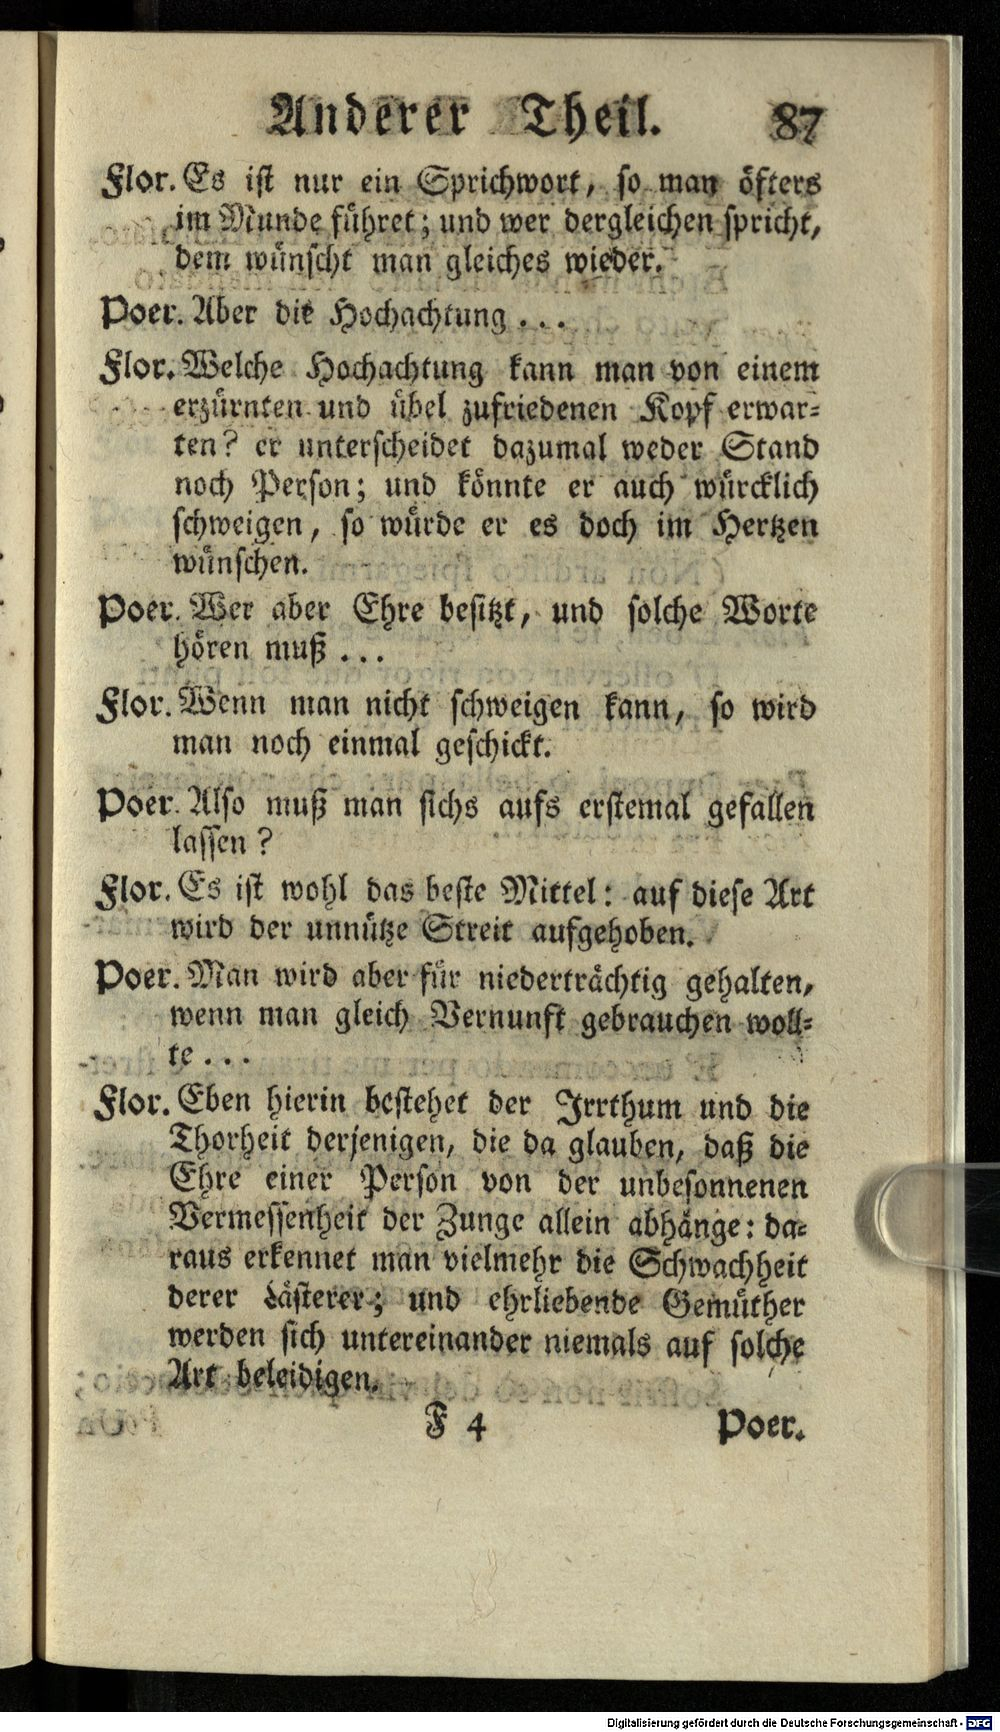 Anderer Theil. 87
Flor. Es ist nur ein Sprichwort, so man öfters
im Munde führet; und wer dergleichen spricht,
dem wünscht man gleiches wieder.
Poer. Aber die Hochachtung . . .
Flor. Welche Hochachtung kann man von einem
erzürnten und übel zufriedenen Kopf erwar-
ten? er unterscheidet dazumal weder Stand
noch Person; und könnte er auch würcklich
schweigen, so würde er es doch im Hertzen
wünschen.
Poer. Wer aber Ehre besitzt, und solche Worte
hören muß . . .
Flor. Wenn man nicht schweigen kann, so wird
man noch einmal geschickt.
Poer. Also muß man sichs aufs erstemal gefallen
lassen?
Flor. Es ist wohl das beste Mittel: auf diese Art
wird der unnütze Streit aufgehoben.
Poer. Man wird aber für niederträchtig gehalten,
wenn man gleich Vernunft gebrauchen woll-
te . . .
Flor. Eben hierin bestehet der Irrthum und die
Thorheit derjenigen, die da glauben, daß die
Ehre einer Person von der unbesonnenen
Vermessenheit der Zunge allein abhänge: da-
raus erkennet man vielmehr die Schwachheit
derer Lästerer; und ehrliebende Gemüther
werden sich untereinander niemals auf solche
Art beleidigen.
F 4 Poer.
Digitalisierung gefördert durch die Deutsche Forschungsgemeinschaft - DFG